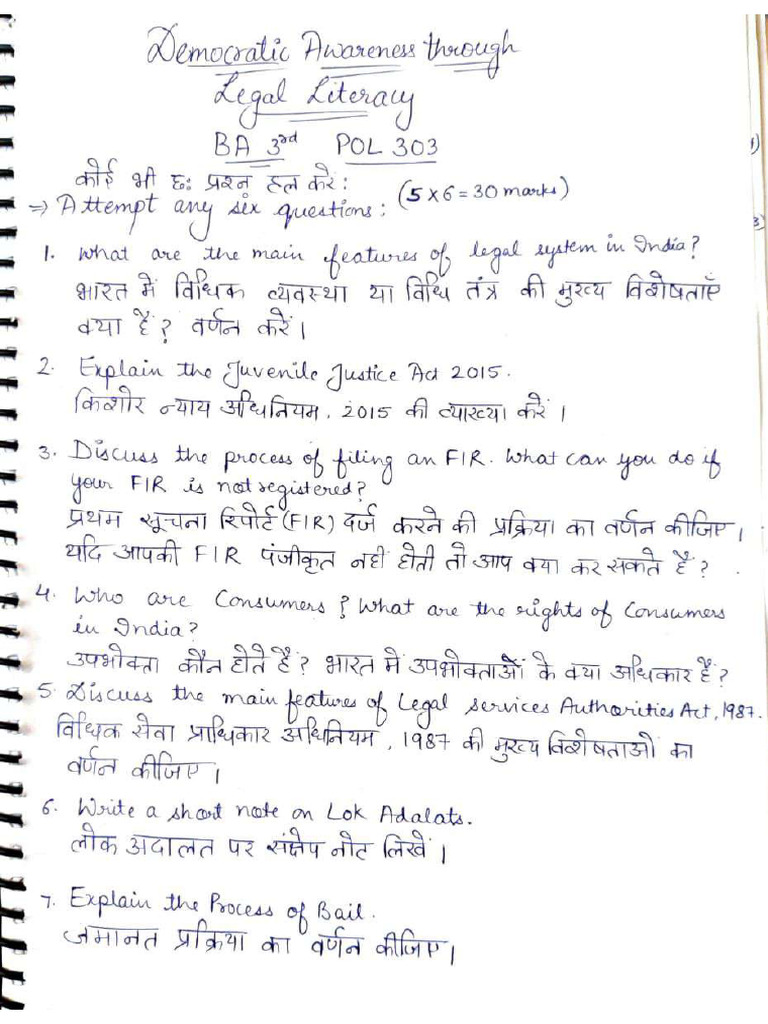 Democratic Awareness through
Legal Literacy
BA 3rd POL 303
कोई भी छ: प्रश्न हल करें:
(5 × 6 = 30 marks)
⇒ Attempt any six questions:
1. What are the main features of legal system in India?
भारत में विधिक व्यवस्था या विधि तंत्र की मुख्य विशेषताएँ
क्या हैं? वर्णन करें।
2. Explain the Juvenile Justice Act 2015.
किशोर न्याय अधिनियम, 2015 की व्याख्या करें।
3. Discuss the process of filing an FIR. What can you do if
your FIR is not registered?
प्रथम सूचना रिपोर्ट (FIR) दर्ज करने की प्रक्रिया का वर्णन कीजिए।
यदि आपकी FIR पंजीकृत नहीं होती तो आप क्या कर सकते हैं?
4. Who are Consumers? What are the rights of Consumers
in India?
उपभोक्ता कौन होते हैं? भारत में उपभोक्ताओं के क्या अधिकार हैं?
5. Discuss the main features of Legal Services Authorities Act, 1987.
विधिक सेवा प्राधिकार अधिनियम, 1987 की मुख्य विशेषताओं का
वर्णन कीजिए।
6. Write a short note on Lok Adalats.
लोक अदालत पर संक्षेप नोट लिखें।
7. Explain the Process of Bail.
जमानत प्रक्रिया का वर्णन कीजिए।
1)
3)